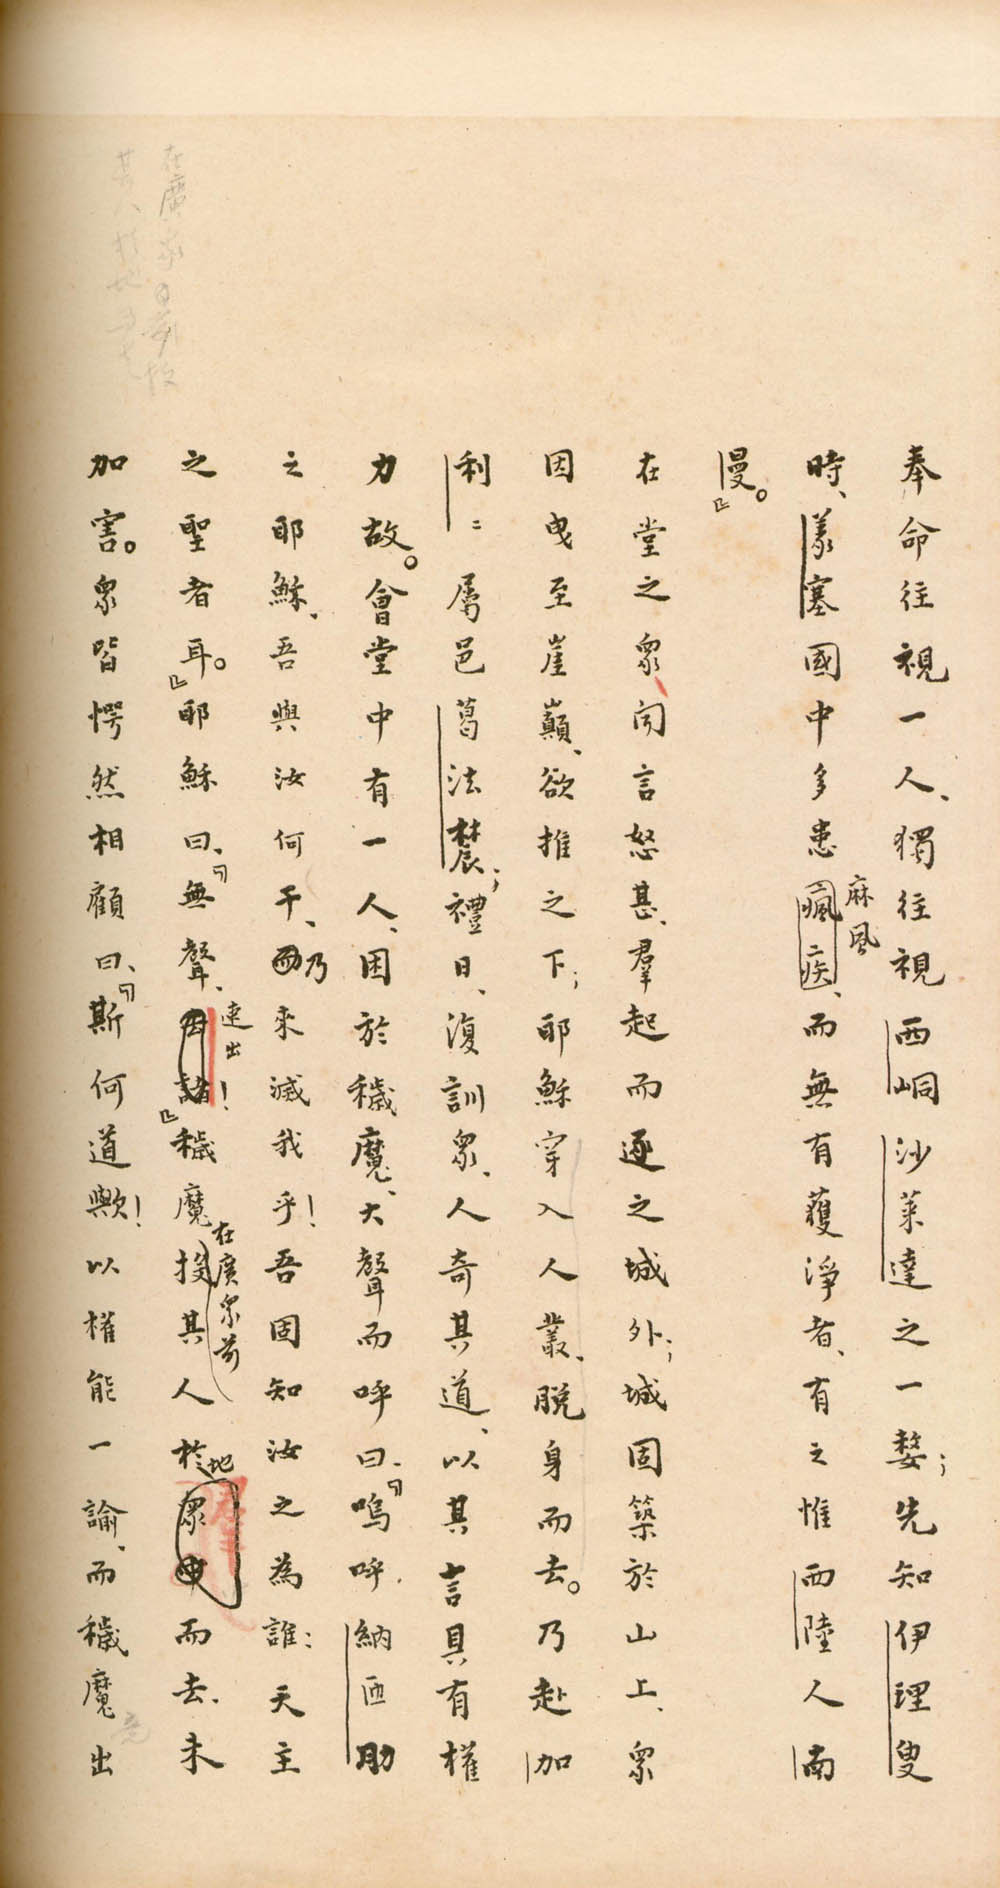 奉命往視一人、獨往視西峒沙萊達之一嫠；先知伊理叟
時、漾塞國中多患瘋疾、而無有獲淨者、有之惟西陸人南
麻風
慢。』
在堂之眾、聞言怒甚、羣起而逐之城外；城固築於山上、眾
因曳至崖巔、欲推之下；耶穌穿入人叢、脫身而去。乃赴加
利二屬邑葛法農；禮日、復訓眾、人奇其道、以其言具有權
力故。會堂中有一人、困於穢魔、大聲而呼曰、『嗚呼、納匝肋
之耶穌、吾與汝何干、而來滅我乎！吾固知汝之為誰：天主
乃
之聖者耳。』耶穌曰、『無聲、由諸！』穢魔投其人於眾中而去、未
速出
在廣眾前
地
加害。眾皆愕然相顧曰、『斯何道歟！以權能一諭、而穢魔出